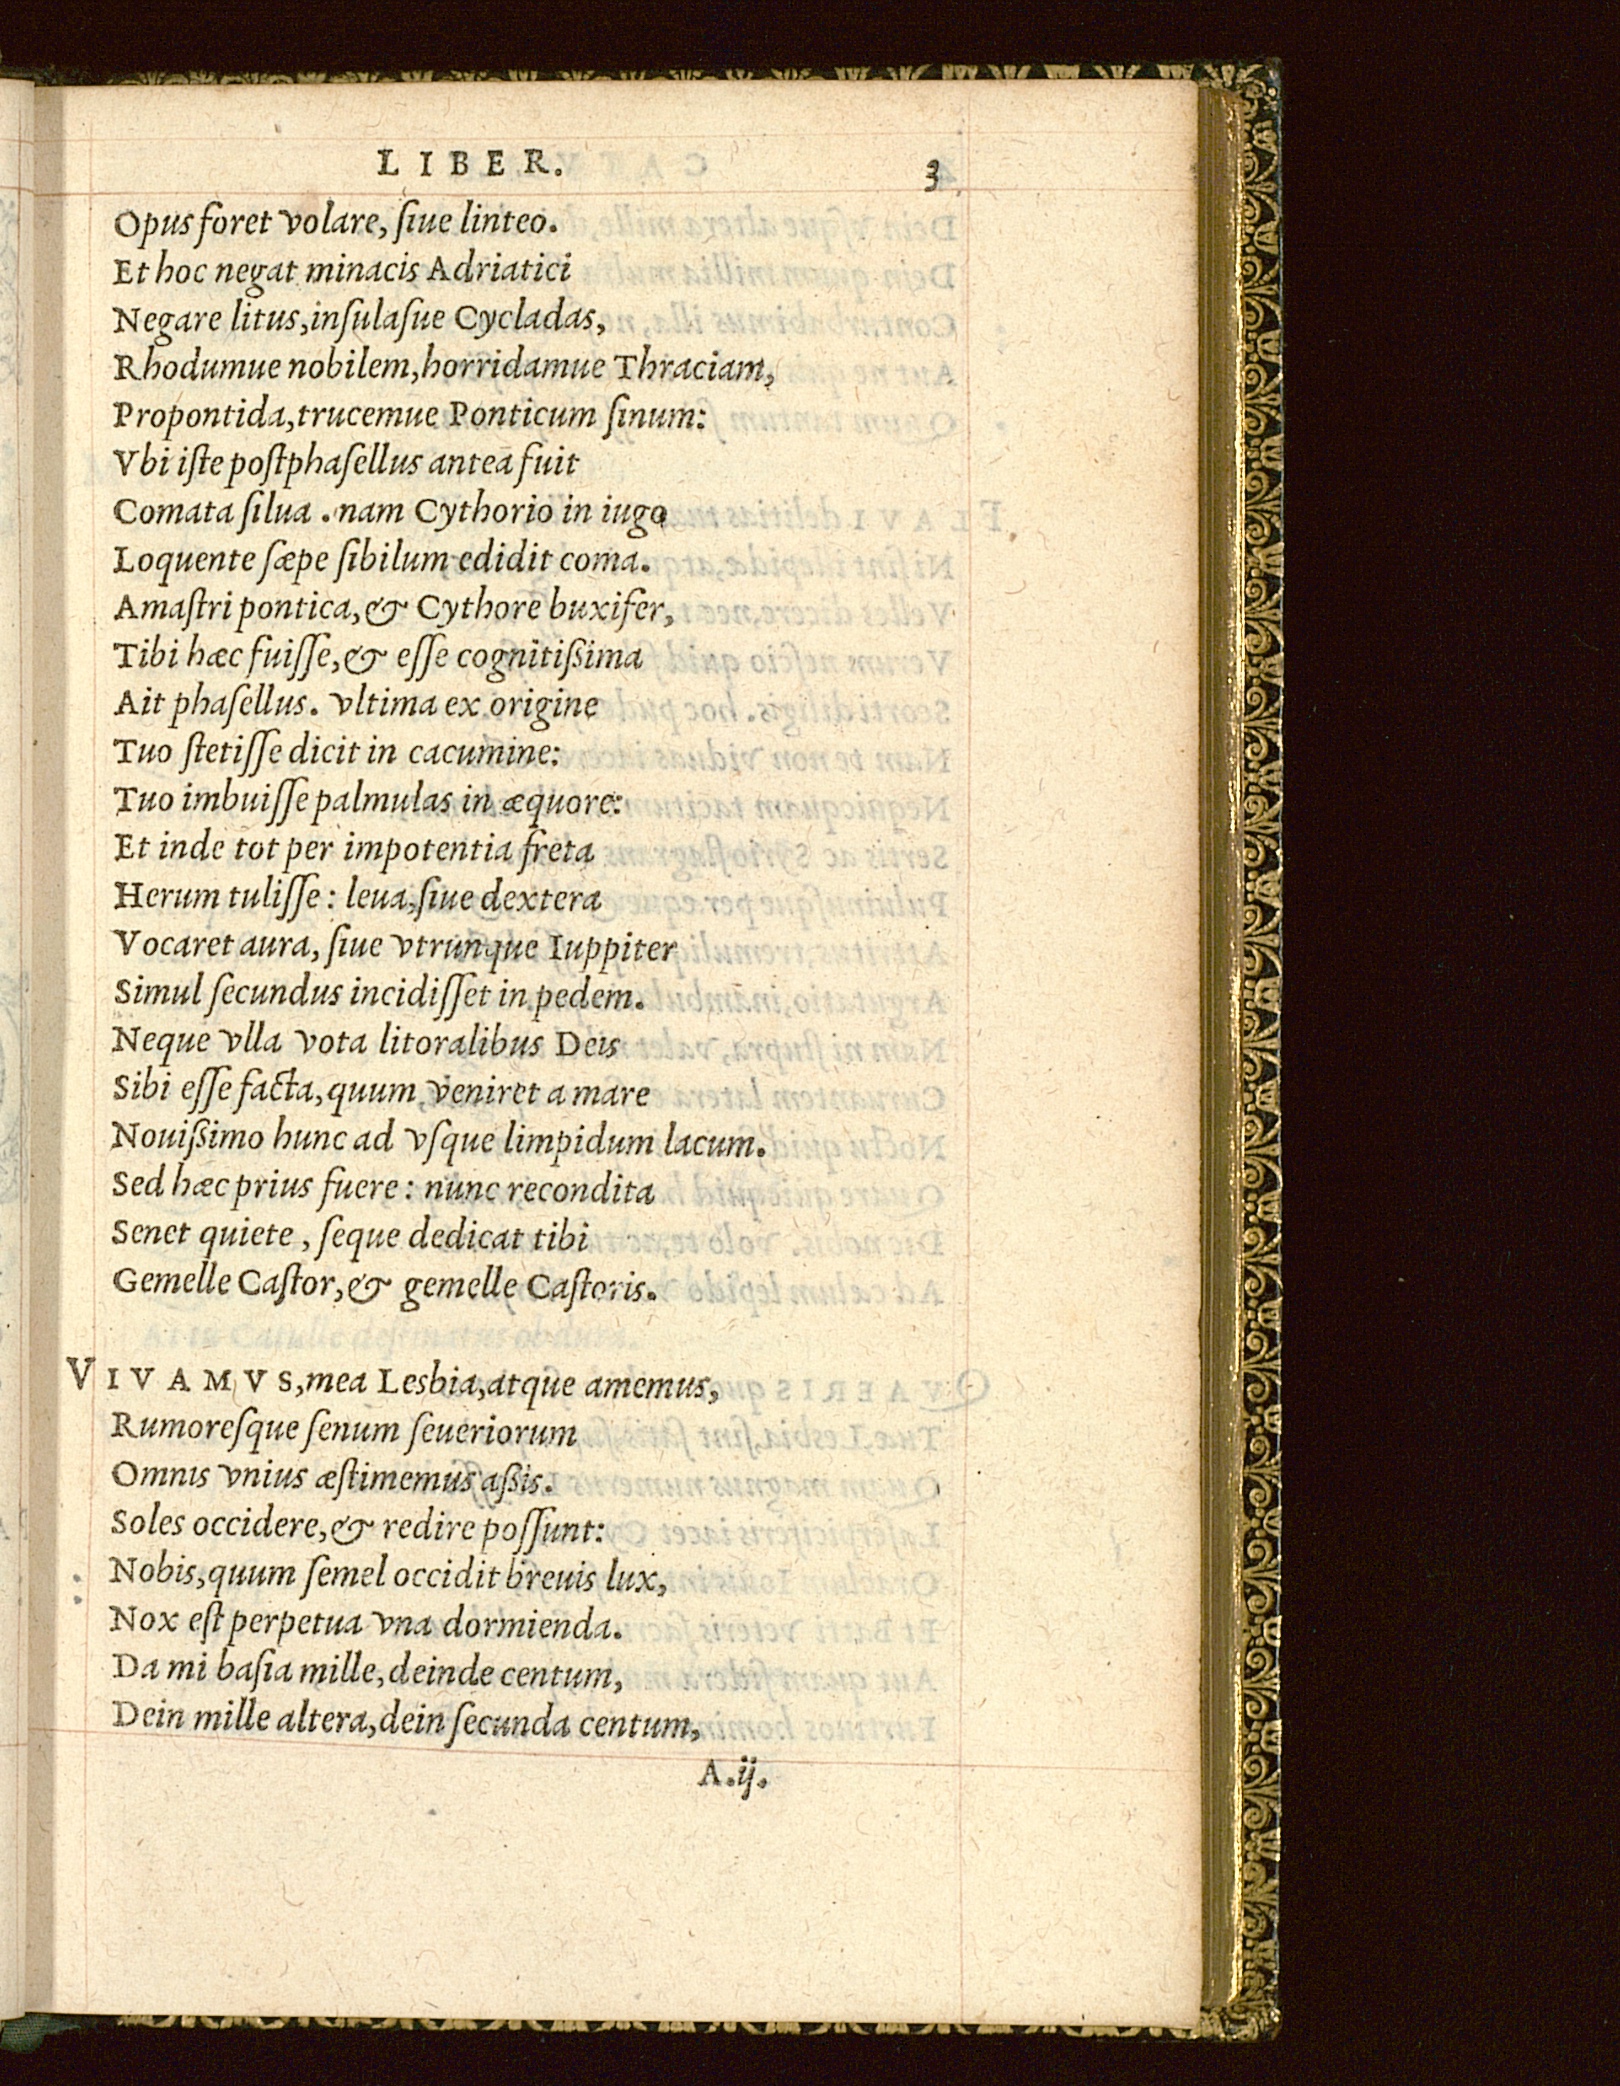 LIBER. 3
Opus foret volare, ſiue linteo.
Et hoc negat minacis Adriatici
Negare litus, inſulaſue Cycladas,
Rhodumue nobilem, horridamue Thraciam,
Propontida, trucemue Ponticum ſinum:
Vbi iſte poſtphaſellus antea fuit
Comata ſilua . nam Cythorio in iugo
Loquente ſæpe ſibilum edidit coma.
Amaſtri pontica, & Cythore buxifer,
Tibi hæc fuiſſe, & eſſe cognitißima
Ait phaſellus. vltima ex origine
Tuo ſtetiſſe dicit in cacumine:
Tuo imbuiſſe palmulas in æquore:
Et inde tot per impotentia freta
Herum tuliſſe: leua, ſiue dextera
Vocaret aura, ſiue vtrunque Iuppiter
Simul ſecundus incidiſſet in pedem.
Neque vlla vota litoralibus Deis
Sibi eſſe facta, quum veniret a mare
Nouißimo hunc ad vſque limpidum lacum.
Sed hæc prius fuere: nunc recondita
Senet quiete, ſeque dedicat tibi
Gemelle Caſtor, & gemelle Caſtoris.
VIVAMVS, mea Lesbia, atque amemus,
Rumoreſque ſenum ſeueriorum
Omnis vnius æſtimemus aßis.
Soles occidere, & redire poſſunt:
Nobis, quum ſemel occidit breuis lux,
Nox eſt perpetua vna dormienda.
Da mi baſia mille, deinde centum,
Dein mille altera, dein ſecunda centum,
A.ij.